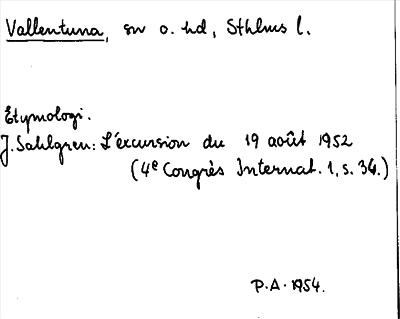 Vallentuna, sn o. hd, Sthlms l.
Etymologi.
J. Sahlgren: L'excursion du 19 août 1952
(4e Congrès Internat. 1, s. 34.)
P.A. 1954.